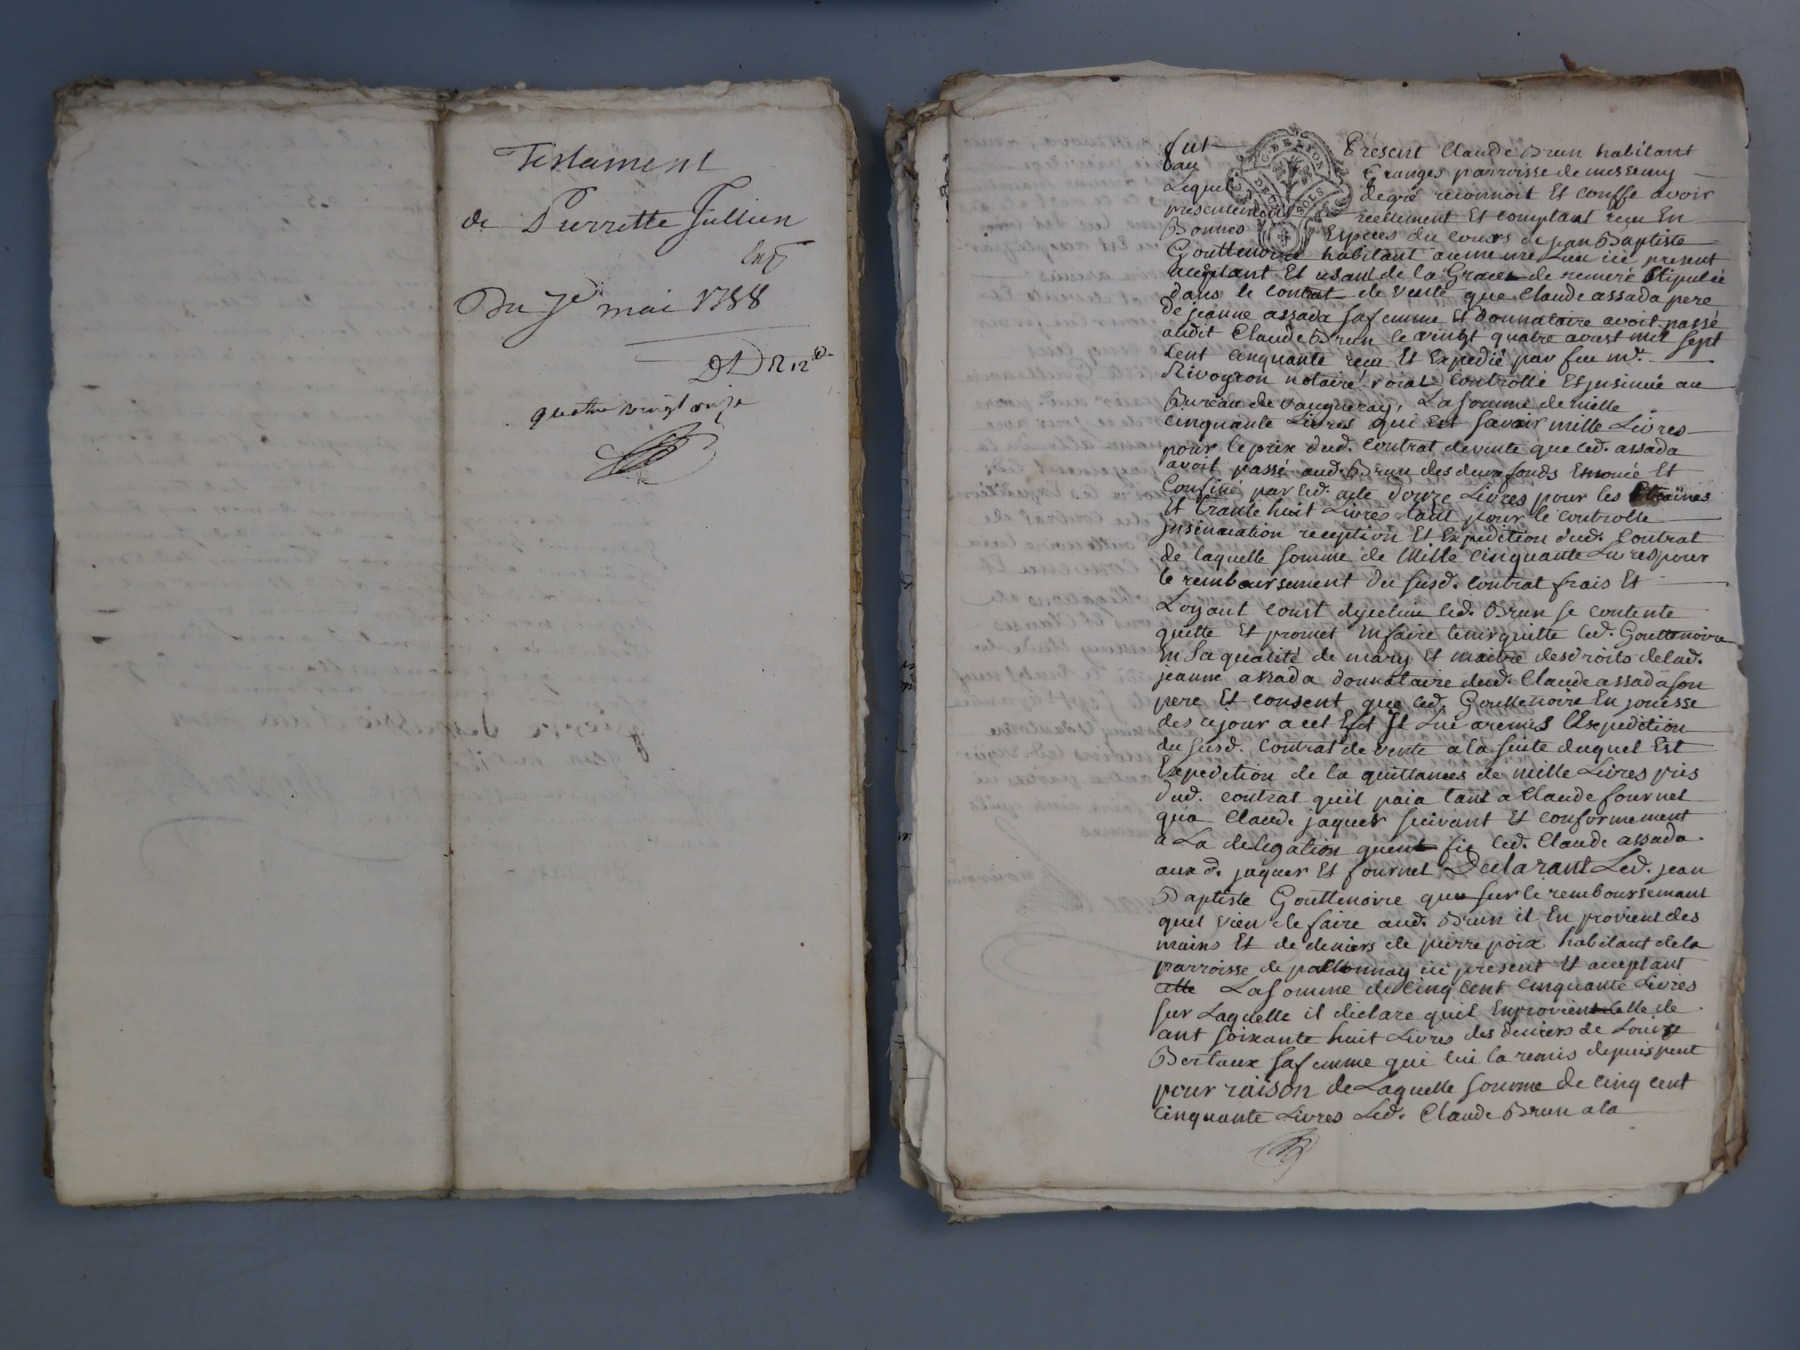 Testament
de Pierrette Jullien
Du 7e mai 1788
quatre vingt onze
G. DE LYON
DEUX SOLS
fut Présent Claude Brun habitant
au Granges parroisse de messemy
Lequel de gré reconnoit Et confesse avoir
presentement reellement Et comptant reçu En
Bonnes Especes du cours de jean Baptiste
Gouttenoire habitant au meme Lieu ici present
aceptant Et usant de la Grace de remeré Stipulée
dans le contrat de vente que Claude assada pere
de jeanne assada sa femme Et donnataire avoit passé
audit Claude Brun le vingt quatre avril mil sept
cent cinquante reçu Et Expedié par feu me.
Rivoyron notaire roial Controllé Et jnsinué au
Bureau de vaugneray, La somme de mille
cinquante Livres qui Est savoir mille Livres
pour le prix dud. contrat de vente que led. assada
avoit passé aud. Brun des deux fonds Ennoncé Et
Confiné par led. acte douze Livres pour les Etraines
Et trante huit Livres tant pour le controlle
jnsinuation reception Et Expedition dud. contrat
de laquelle somme de Mille cinquante Livres pour
le remboursement du susd. contrat frais Et
Loyaut coust dycelui led. Brun se contente
quitte Et promet En faire tenir quitte led. Gouttenoire
En Sa qualité de mary Et maitre des droits de lad.
jeanne assada donnataire dud. Claude assada son
pere Et consent que led. Gouttenoire En jouisse
des ce jour a cet Efet Il Lui a remis l'Expedition
du susd. Contrat de vente a la suite duquel Est
Expedition de la quittances de mille Livres pris
dud. contrat qu'il paia tant a Claude fournel
qu'a Claude jaquer suivant Et conformement
a La delegation quen fit led. Claude assada
aux d. jaquer Et fournel Declarant Led. jean
Baptiste Gouttenoire que sur le remboursemant
quel vien de faire aud. Brun il En provient des
mains Et de deniers de pierre poix habitant de la
parroisse de pollionnay ici present Et aceptant
La somme de cinq cent cinquante Livres
sur Laquelle il declare quil En provient celle de
cent soixante huit Livres des deniers de Louise
Bertaux sa femme qui lui la remis depuis peut
pour raison de Laquelle somme de cinq cent
cinquante Livres Led. Claude Brun a la